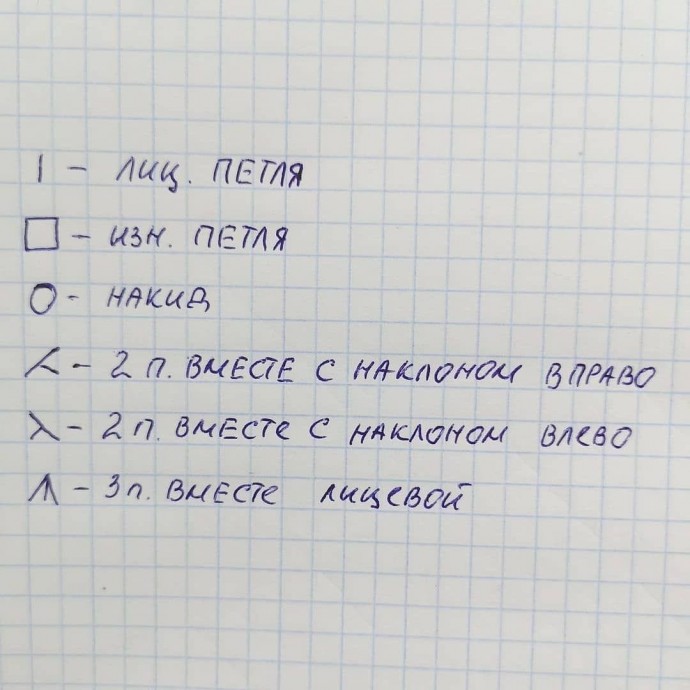 | – ЛИЦ. ПЕТЛЯ
□ – ИЗН. ПЕТЛЯ
О – НАКИД
⋌ – 2 П. ВМЕСТЕ С НАКЛОНОМ ВПРАВО
⋋ – 2 П. ВМЕСТЕ С НАКЛОНОМ ВЛЕВО
⩚ – 3 П. ВМЕСТЕ ЛИЦЕВОЙ